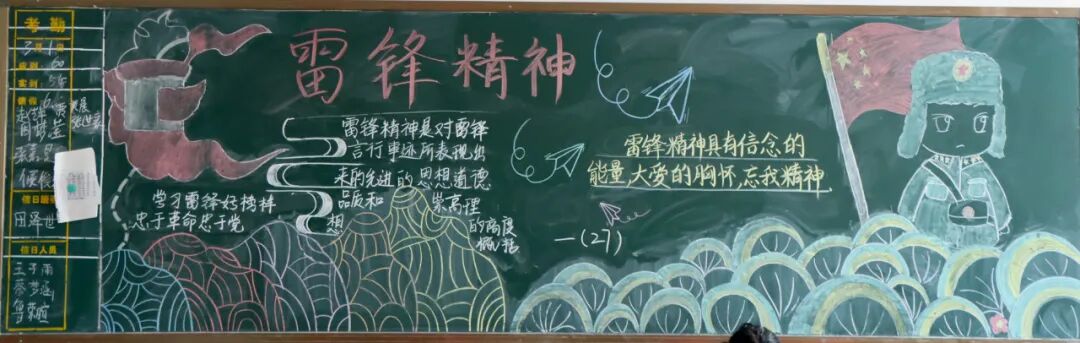 考勤
3月1日
应到:60
实到:55
请假:6
值日班
田泽世
值日人员
王子雨
雷锋精神
雷锋精神是对雷锋
言行事迹所表现出
来的先进的思想道德
品质和 崇高理
想 的高度
概括
学习雷锋好榜样
忠于革命忠于党
雷锋精神具有信念的
能量,大爱的胸怀,忘我精神
一(27)